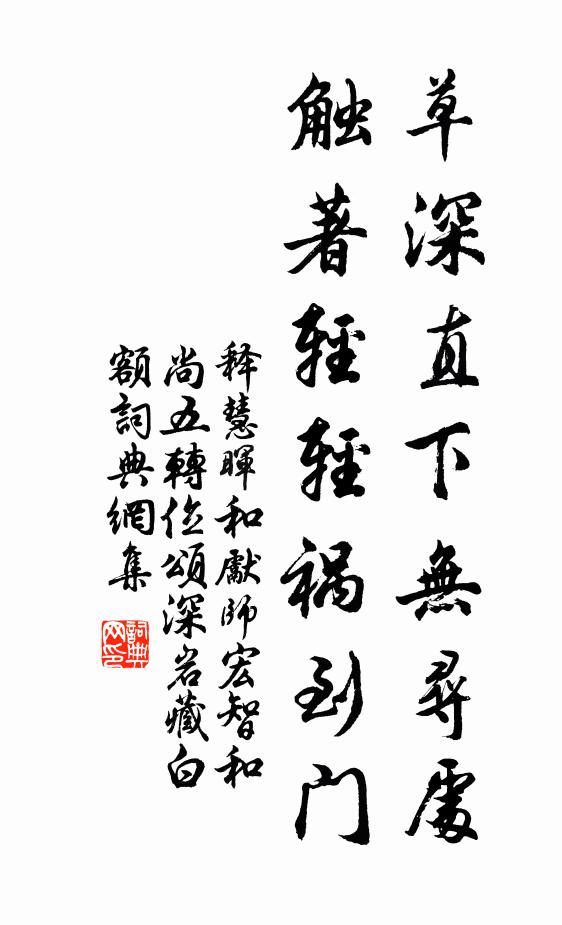 草深直下無尋處
触著輕輕禍到门
释慧暉和獻師宏智和
尚五轉位頌深岩藏白
額詞典網集
詞典
网印